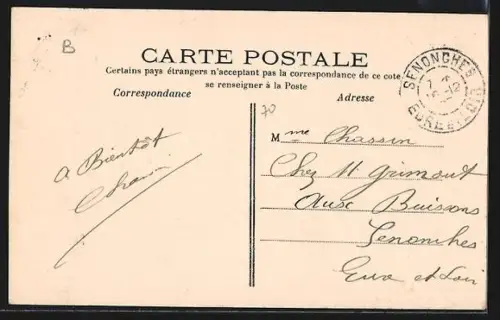 B
CARTE POSTALE
Certains pays étrangers n'acceptant pas la correspondance de ce coté
se renseigner à la Poste
Correspondance
Adresse
70
SENONCHES
EURE ET LOIR
A Bientôt
Mme Chassin
Chez M Grimout
Aux Buissons
Senonches
Eure et Loir